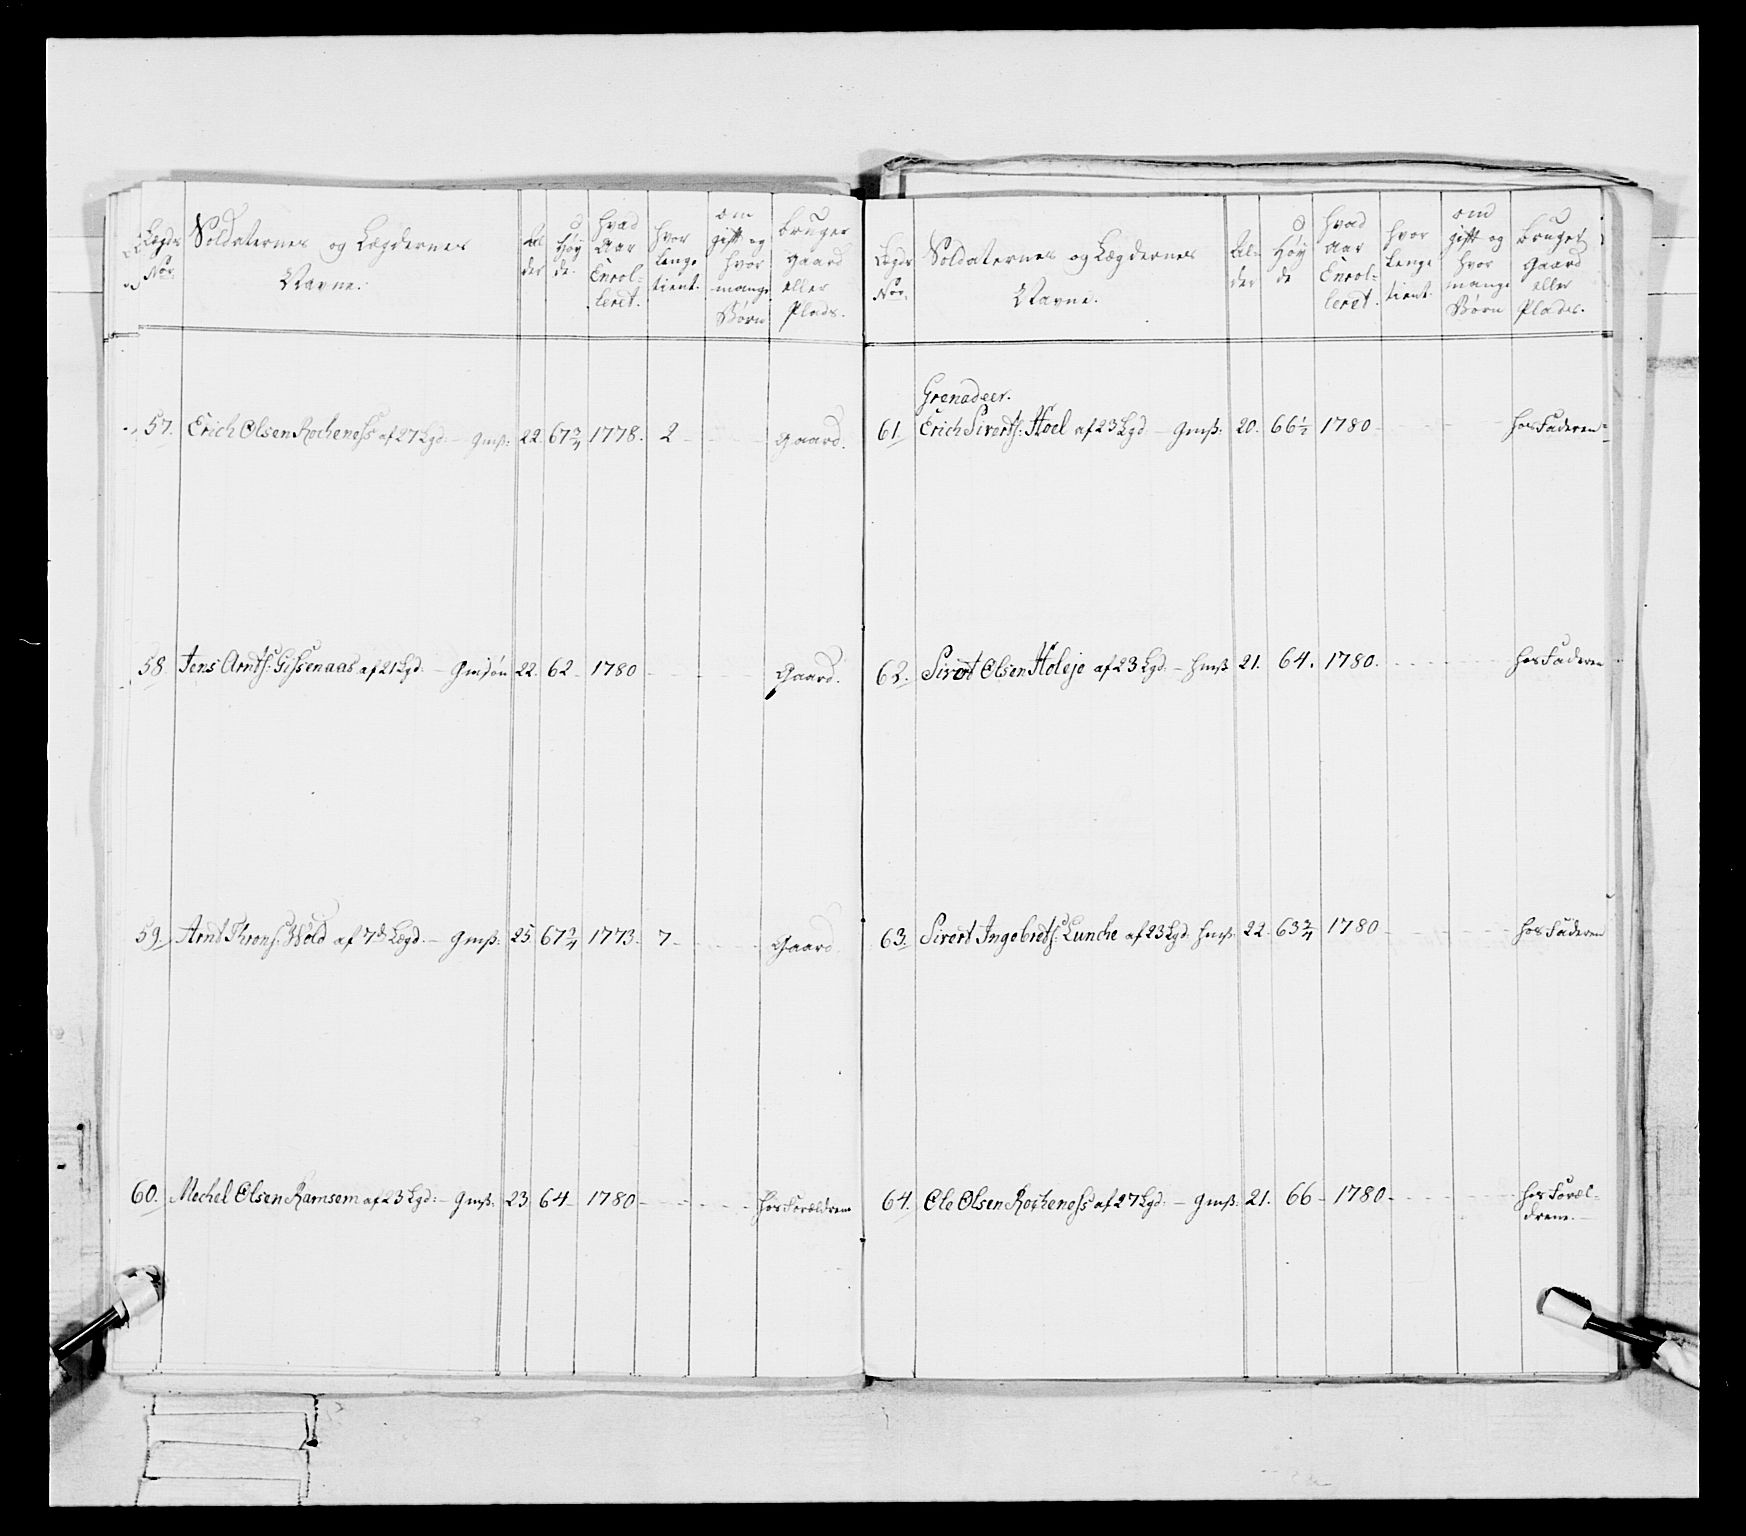 Lægds Nor. Soldaternes og Lægdernes Navne. Alder Høyde. hvad Aar Enrolleret. hvor lenge tient. om gift og hvor mange Børn bruger gaard eller Plads.
57. Erich Olsen Rocheness af 27 Lgd. – Gmß: 22. 67 3/4 1778. 2 - - - Gaard.
58 Jens Arntſ: Gissenaas af 21 Lgd. – Gmſøn 22. 62 – 1780 - - - Gaard.
59. Arnt Thronſ: Wold af 7de Lægd. – Gmß. 25 67 3/4 1773. 7 - - - Gaard.
60. Mechel Olsen Ramsem af 23 Lgd: – Gmß. 23 64 – 1780 - - - hos Forældrene
Lægds Nor. Soldaternes og Lægdernes Navne. Alder Høyde hvad Aar Enrolleret. hvor lenge tient. om gift og hvor mange Børn bruger Gaard eller Plads.
Grenadeer.
61. Erich Sivertſ: Hoel af 23 Lgd – Gmß. 20. 66 1/2 1780 - - - hos Faderen
62. Sivert Olsen Holeje af 23 Lgd. – Hmß 21. 64. 1780. - - - hos Faderen
63. Sivert Ingebretſ: Lunche af 23 Lgd. Hmß. 22. 63 3/4 1780 - - - hos Faderen
64. Ole Olsen Rocheness af 27 Lgd. – Gmß. 21. 66 – 1780 - - - hos Foræl-
drene.